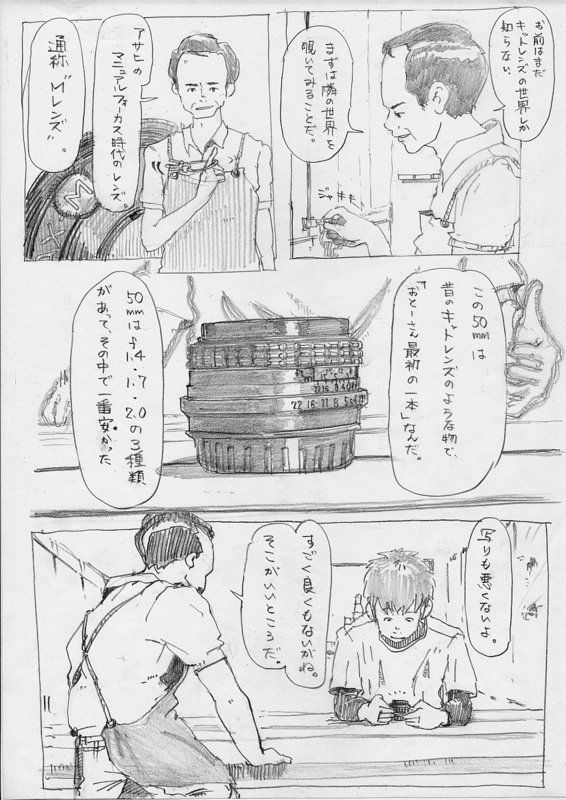 お前はまだ
キットレンズの世界しか
知らない。
まずは隣の世界を
覗いてみることだ。
ジャキキ
アサヒの
マニュアルフォーカス時代のレンズ。
通称〝Mレンズ〟。
M
この50mmは
昔のキットレンズのような物で、
「おとーさん最初の一本」なんだ。
50mmはf1.4
・1.7・2.0の3種類
があって、その中で一番安かった
22 16 11 8 5.6
写りも悪くないよ。
すごく良くもないがね。
そこがいいところだ。